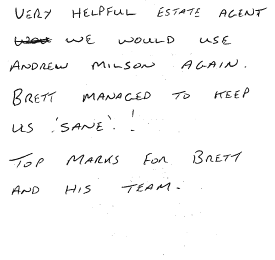 VERY HELPFUL ESTATE AGENT
WE WOULD USE
ANDREW MILSON AGAIN.
BRETT MANAGED TO KEEP
US 'SANE'!
TOP MARKS FOR BRETT
AND HIS TEAM.